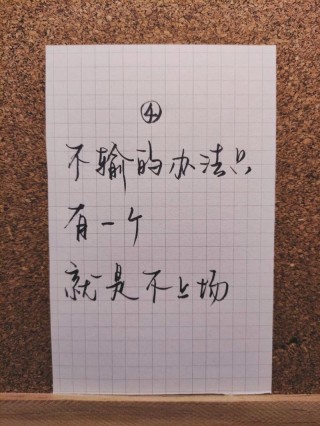 ④
不输的办法只
有一个
就是不上场